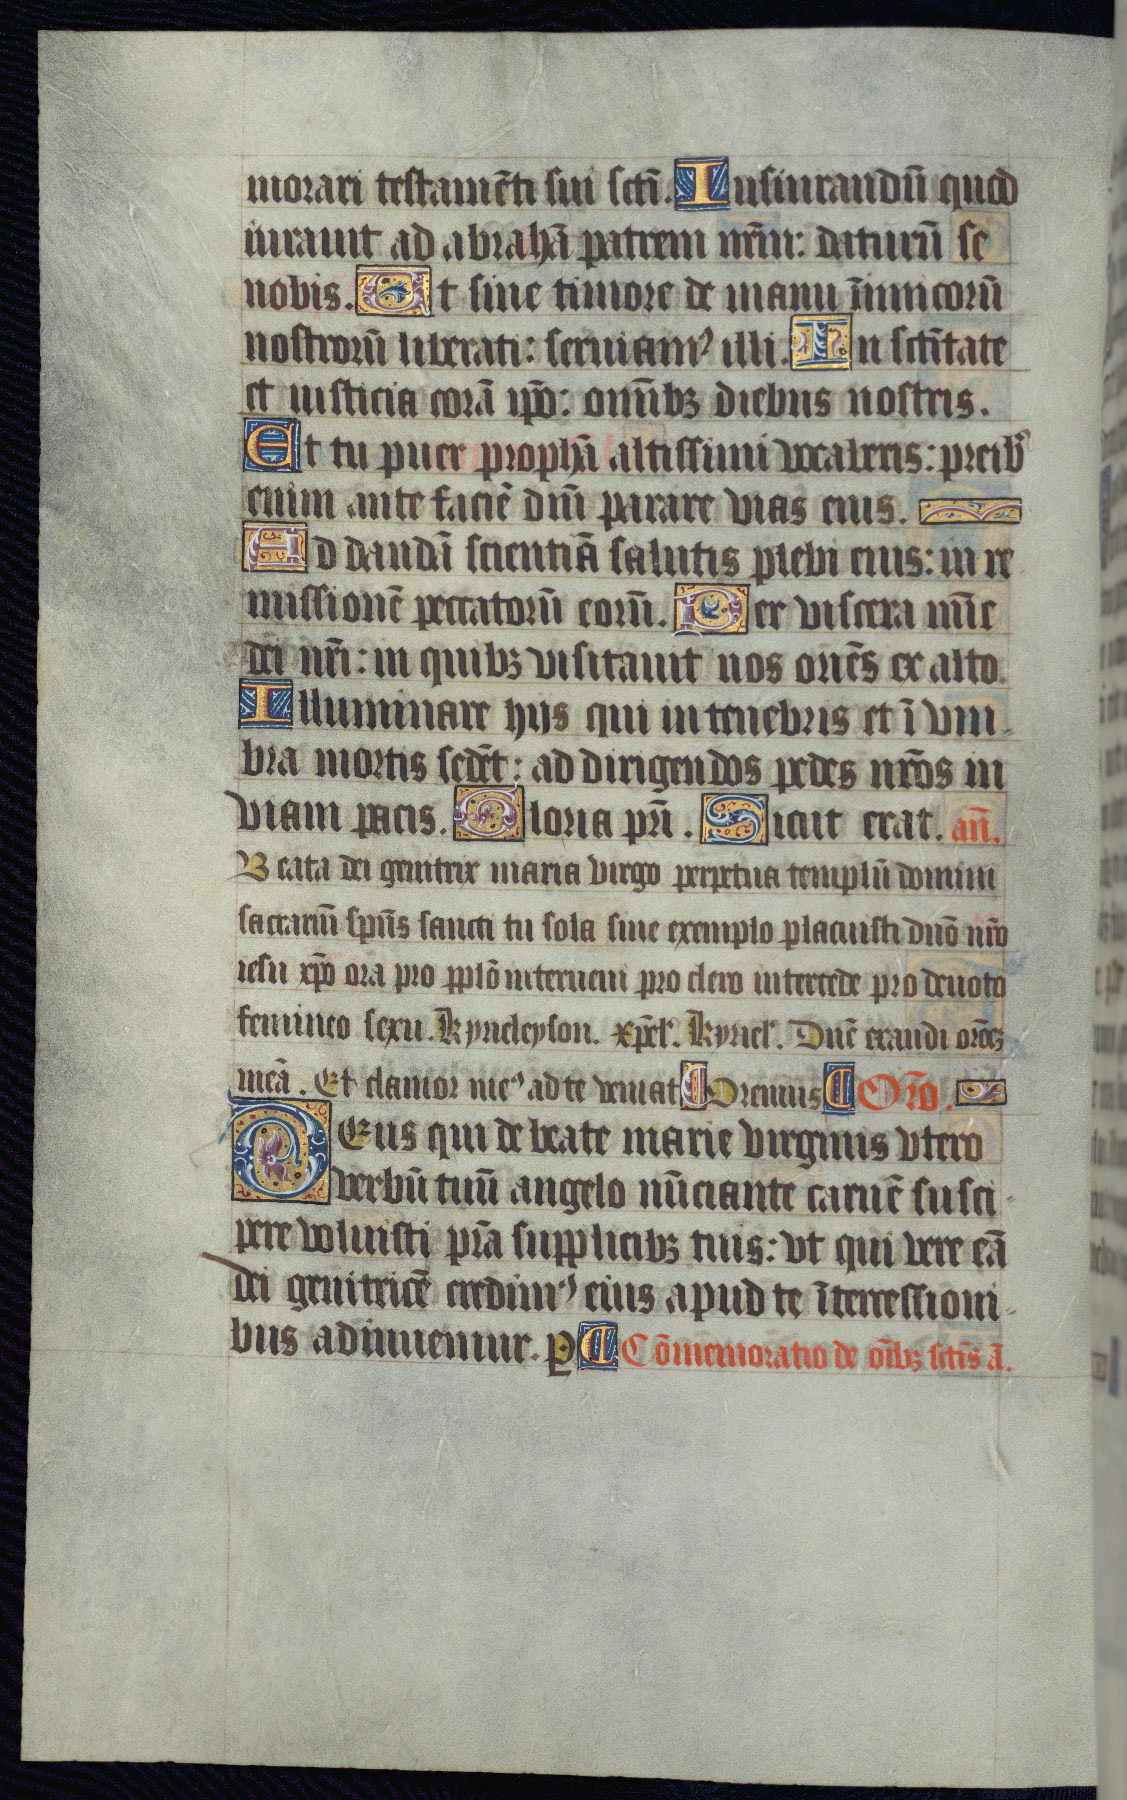 morari testamēti sui scti. Iusiurandū quod
iurauit ad abrahā patrem nr̄m: daturū se
nobis. Ut sine timore de manu īimicorū
nostrorū liberati: seruiamꝰ illi. In sctītate
et iusticia corā ip̄o: om̄ibꝫ diebus nostris.
Et tu puer prophā altissimi vocaberis: preibꝰ
enim ante faciē dn̄i parare vias eius.
Ad dandā scientiā salutis plebi eius: in re
missionē peccatorū eorū. Per viscera mīe
dei nr̄i: in quibꝫ visitauit nos oriēs ex alto.
Illuminare hijs qui in tenebris et ī vm-
bra mortis sedēt: ad dirigendos pedes nr̄os in
viam pacis. Gloria pr̄i. Sicut erat. an̄.
Beata dei genitrix maria virgo perpetua templū domini
sacrariū sp̄us sancti tu sola sine exemplo placuisti dn̄o nr̄o
iesu xp̄o ora pro pplō interueni pro clero intercede pro deuoto
femineo sexu. Kyrieleyson. xp̄el'. Kyriel'. Dn̄e exaudi or̄oeꝫ
meā. Et clamor meꝰ ad te veniat Oremus Or̄o.
DEus qui de beate marie virginis vtero
verbū tuū angelo nūciante carnē susci-
pere voluisti pr̄a supplicibꝫ tuis: vt qui vere eā
dei genitricē credimꝰ eius apud te ītercessioni-
bus adiuuemur. ꝑ Cōmemoratio de oīb̄ꝫ sctīs ā.